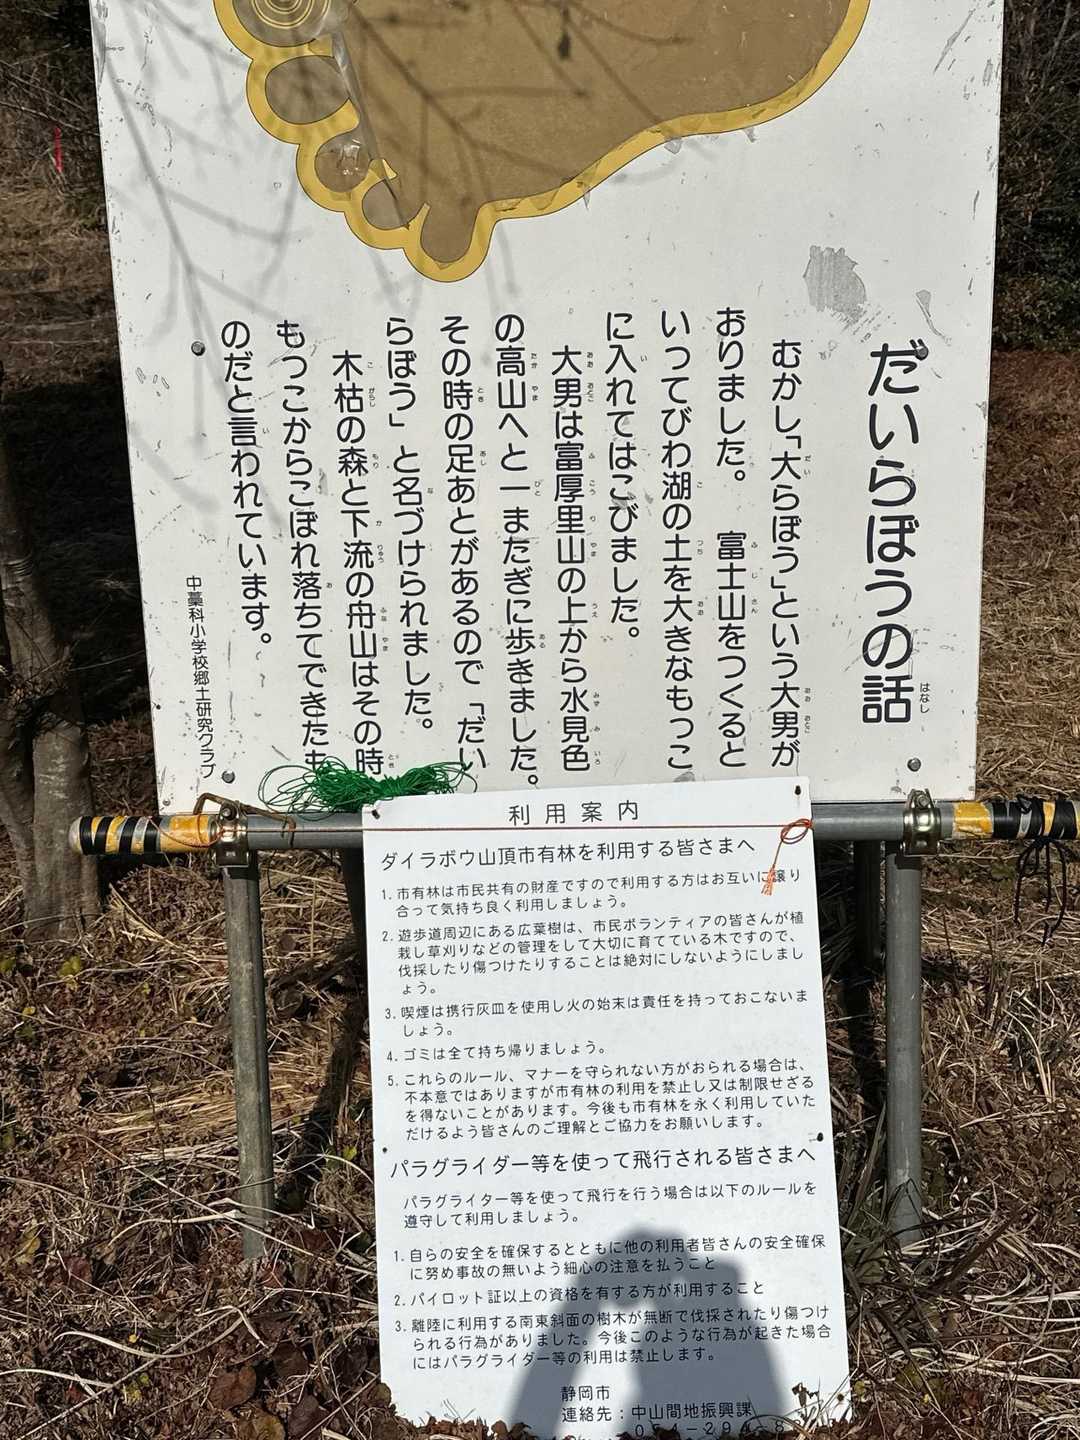 だいらぼうの話
むかし「大らぼう」という大男が
おりました。　富士山をつくると
いってびわ湖の土を大きなもっこ
に入れてはこびました。
大男は富厚里山の上から水見色
の高山へと一またぎに歩きました。
その時の足あとがあるので「だい
らぼう」と名づけられました。
木枯の森と下流の舟山はその時
もっこからこぼれ落ちてできたも
のだと言われています。
中藁科小学校郷土研究クラブ
利用案内
ダイラボウ山頂市有林を利用する皆さまへ
1. 市有林は市民共有の財産ですので利用する方はお互いに譲り
合って気持ち良く利用しましょう。
2. 遊歩道周辺にある広葉樹は、市民ボランティアの皆さんが植
栽し草刈りなどの管理をして大切に育てている木ですので、
伐採したり傷つけたりすることは絶対にしないようにしまし
ょう。
3. 喫煙は携行灰皿を使用し火の始末は責任を持っておこないま
しょう。
4. ゴミは全て持ち帰りましょう。
5. これらのルール、マナーを守られない方がおられる場合は、
不本意ではありますが市有林の利用を禁止し又は制限せざる
を得ないことがあります。今後も市有林を永く利用していた
だけるよう皆さんのご理解とご協力をお願いします。
パラグライダー等を使って飛行される皆さまへ
パラグライター等を使って飛行を行う場合は以下のルールを
遵守して利用しましょう。
1. 自らの安全を確保するとともに他の利用者皆さんの安全確保
に努め事故の無いよう細心の注意を払うこと
2. パイロット証以上の資格を有する方が利用すること
3. 離陸に利用する南東斜面の樹木が無断で伐採されたり傷つけ
られる行為がありました。今後このような行為が起きた場合
にはパラグライダー等の利用は禁止します。
静岡市
連絡先：中山間地振興課
054-294-8